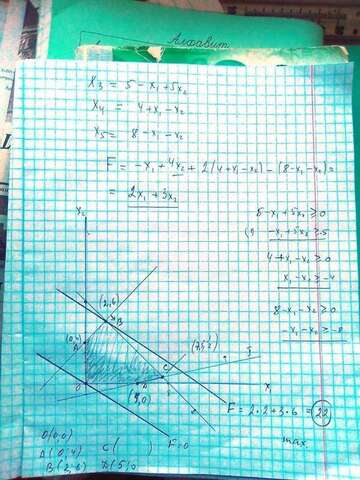 Алфавит
x₃ = 5 - x₁ + 5x₂
x₄ = 4 + x₁ - x₂
x₅ = 8 - x₁ - x₂
F = -x₁ + 4x₂ + 2(4 + x₁ - x₂) - (8 - x₁ - x₂) =
= 2x₁ + 3x₂
5 - x₁ + 5x₂ ≥ 0
-x₁ + 5x₂ ≥ -5
4 + x₁ - x₂ ≥ 0
x₁ - x₂ ≥ -4
8 - x₁ - x₂ ≥ 0
-x₁ - x₂ ≥ -8
x₂
(2,6)
B
(0,4)
A
C
D
(5,0)
x₁
F = 2·2 + 3·6 = 22
max.
F=0
O(0,0)
A(0,4) C( )
B(2,6) D(5,0)